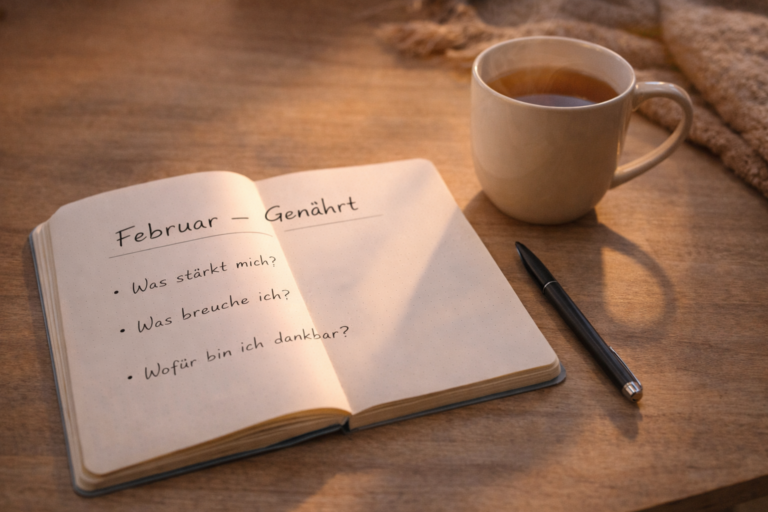 Februar – Genährt
• Was stärkt mich?
• Was breuche ich?
• Wofür bin ich dankbar?